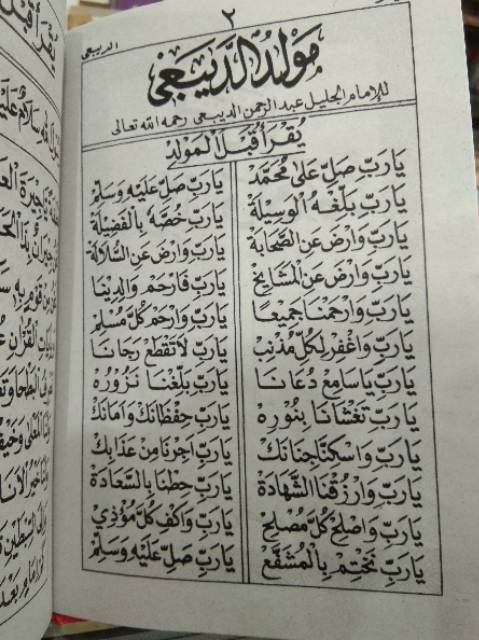 ٢
الديبعي
مَوْلِدُ الدَّيْبَعِي
للإمام الجليل عبد الرحمن الديبعي رحمه الله تعالى
يُقْرَأُ قَبْلَ الْمَوْلِدِ
يَارَبِّ صَلِّ عَلَى مُحَمَّدْ يَارَبِّ صَلِّ عَلَيْهِ وَسَلِّمْ
يَارَبِّ بَلِّغْهُ الْوَسِيْلَةْ يَارَبِّ خُصَّهُ بِالْفَضِيْلَةْ
يَارَبِّ وَارْضَ عَنِ الصَّحَابَةْ يَارَبِّ وَارْضَ عَنِ السُّلَالَةْ
يَارَبِّ وَارْضَ عَنِ الْمَشَايِخْ يَارَبِّ فَارْحَمْ وَالِدِيْنَا
يَارَبِّ وَارْحَمْنَا جَمِيْعًا يَارَبِّ وَارْحَمْ كُلَّ مُسْلِمْ
يَارَبِّ وَاغْفِرْ لِكُلِّ مُذْنِبْ يَارَبِّ لَاتَقْطَعْ رَجَانَا
يَارَبِّ يَاسَامِعْ دُعَانَا يَارَبِّ بَلِّغْنَا نَزُوْرُهْ
يَارَبِّ تَغْشَانَا بِنُوْرِهْ يَارَبِّ حِفْظَانَكْ وَامَانَكْ
يَارَبِّ وَاسْكِنَّا جِنَانَكْ يَارَبِّ اَجِرْنَا مِنْ عَذَابِكْ
يَارَبِّ وَارْزُقْنَا الشَّهَادَةْ يَارَبِّ حِطْنَا بِالسَّعَادَةْ
يَارَبِّ وَاصْلِحْ كُلَّ مُصْلِحْ يَارَبِّ وَاكْفِ كُلَّ مُؤْذِيْ
يَارَبِّ نَخْتِمْ بِالْمُشَفَّعْ يَارَبِّ صَلِّ عَلَيْهِ وَسَلِّمْ